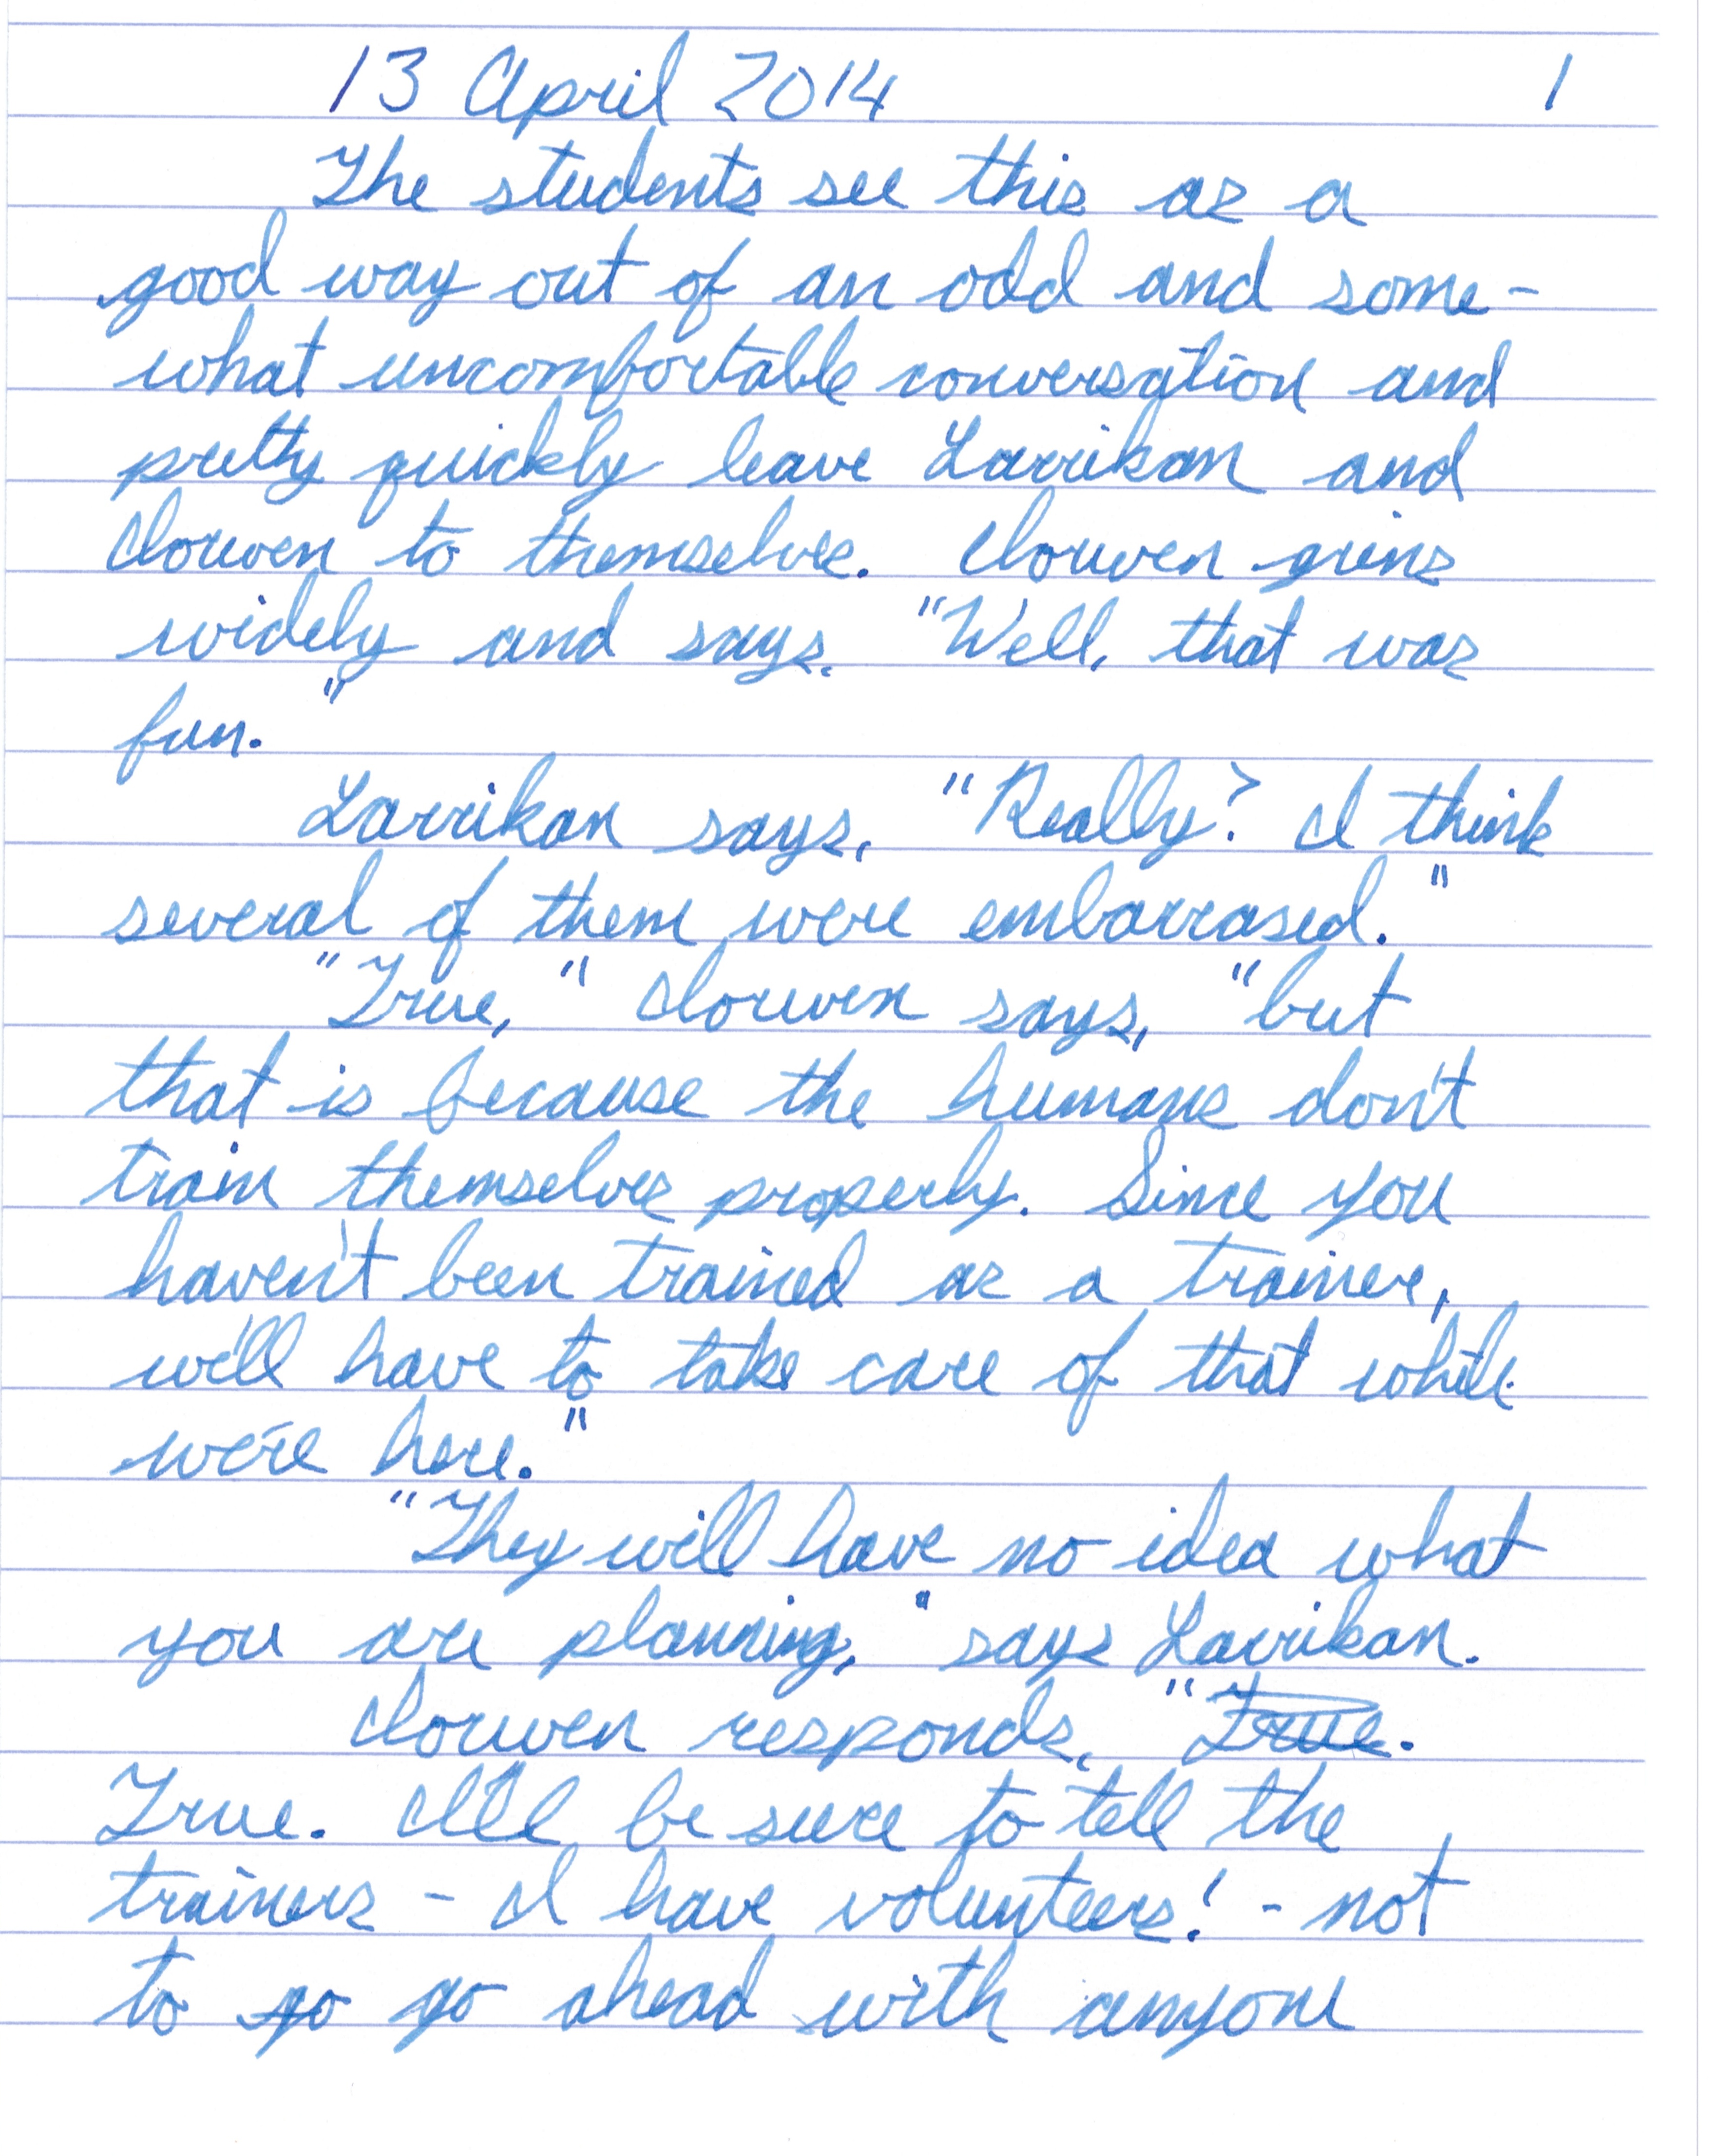 13 April 2014 1
The students see this as a
good way out of an odd and some-
what uncomfortable conversation and
pretty quickly leave Larrikan and
Iorwen to themselves. Iorwen grins
widely and says, "Well, that was
fun."
Larrikan says, "Really? I think
several of them were embarrased."
"True," Iorwen says, "but
that is because the humans don't
train themselves properly. Since you
haven't been trained as a trainer,
we'll have to take care of that while
we're here."
"They will have no idea what
you are planning," says Larrikan.
Iorwen responds, "True.
True. I'll be sure to tell the
trainers - I have volunteers! - not
to go go ahead with anyone